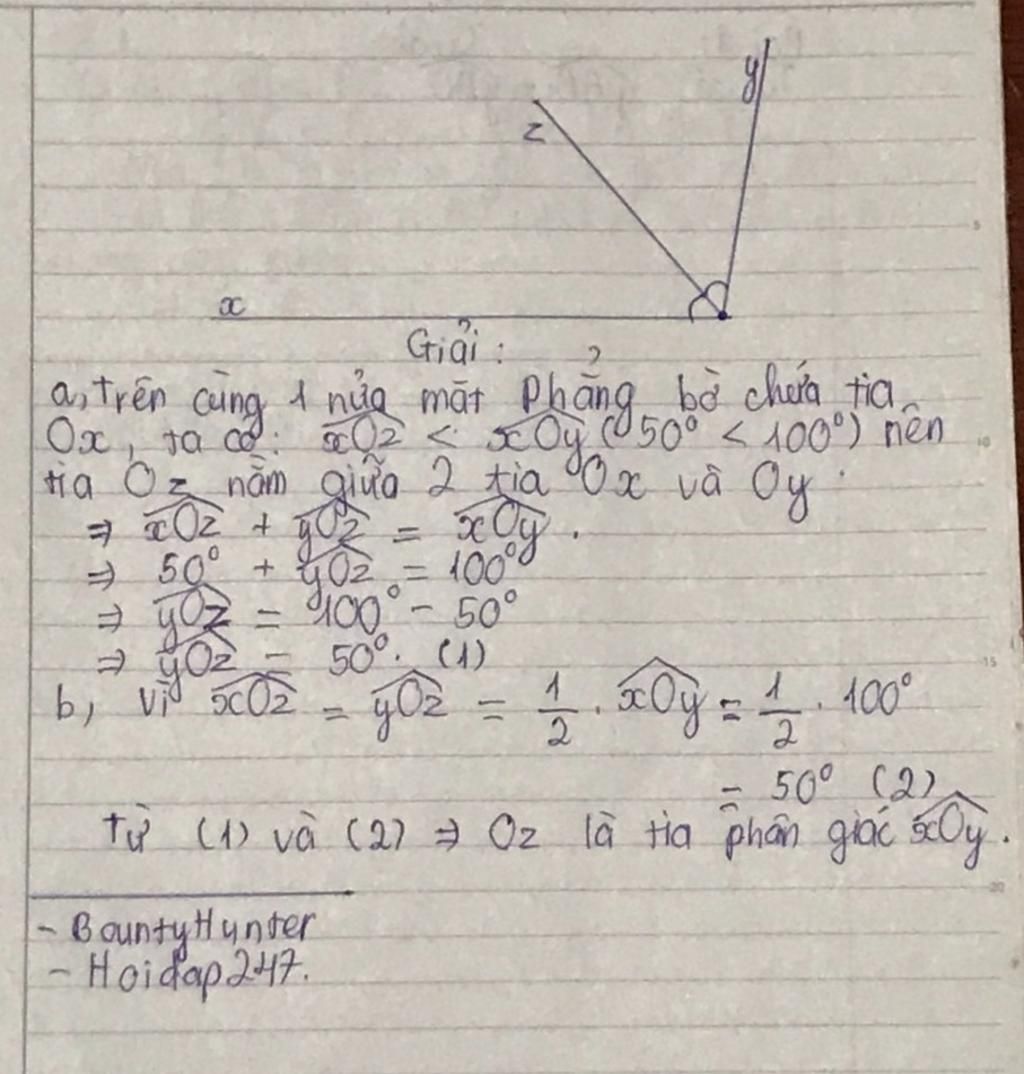 y
z
x
Giải:
a, Trên cùng 1 nửa mặt phẳng bờ chứa tia
Ox, ta có: xOz < xOy (50° < 100°) nên
tia Oz nằm giữa 2 tia Ox và Oy.
⇒ xOz + yOz = xOy.
⇒ 50° + yOz = 100°
⇒ yOz = 100° - 50°
⇒ yOz = 50°. (1)
b, Vì xOz = yOz = 1/2 . xOy = 1/2 . 100°
= 50° (2)
Từ (1) và (2) ⇒ Oz là tia phân giác xOy.
- BountyHunter
- Hoidap247.
5
10
15
20